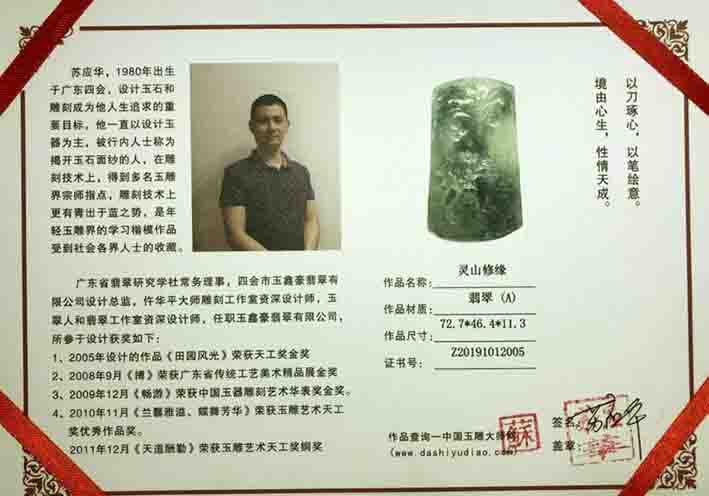 苏应华，1980年出生
于广东四会，设计玉石和
雕刻成为他人生追求的重
要目标，他一直以设计玉
器为主，被行内人士称为
揭开玉石面纱的人，在雕
刻技术上，得到多名玉雕
界宗师指点，雕刻技术上
更有青出于蓝之势，是年
轻玉雕界的学习楷模作品
受到社会各界人士的收藏。
广东省翡翠研究学社常务理事，四会市玉鑫豪翡翠有
限公司设计总监，仵华平大师雕刻工作室资深设计师，玉
翠人和翡翠工作室资深设计师，任职玉鑫豪翡翠有限公司，
所参于设计获奖如下：
1、2005年设计的作品《田园风光》荣获天工奖金奖
2、2008年9月《博》荣获广东省传统工艺美术精品展金奖
3、2009年12月《畅游》荣获中国玉器雕刻艺术华表奖金奖。
4、2010年11月《兰馨雅逗、蝶舞芳华》荣获玉雕艺术天工
奖优秀作品奖。
2011年12月《天道酬勤》荣获玉雕艺术天工奖铜奖
以刀琢心，以笔绘意。
境由心生，性情天成。
作品名称：灵山修缘
作品材质：翡翠（A）
作品尺寸：72.7*46.4*11.3
证书号：Z20191012005
作品查询—中国玉雕大师网
(www.dashiyudiao.com)
蘇
签名：苏应华
盖章：